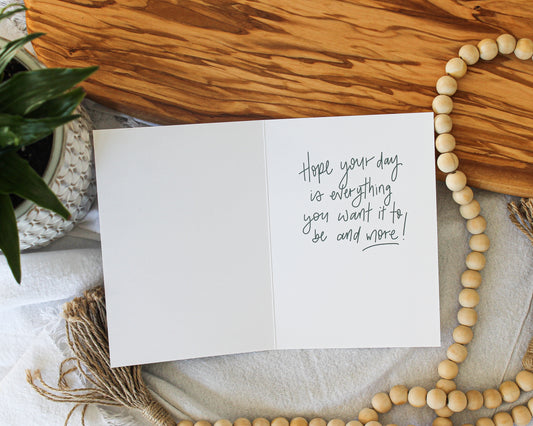 Hope your day
is everything
you want it to
be and more!